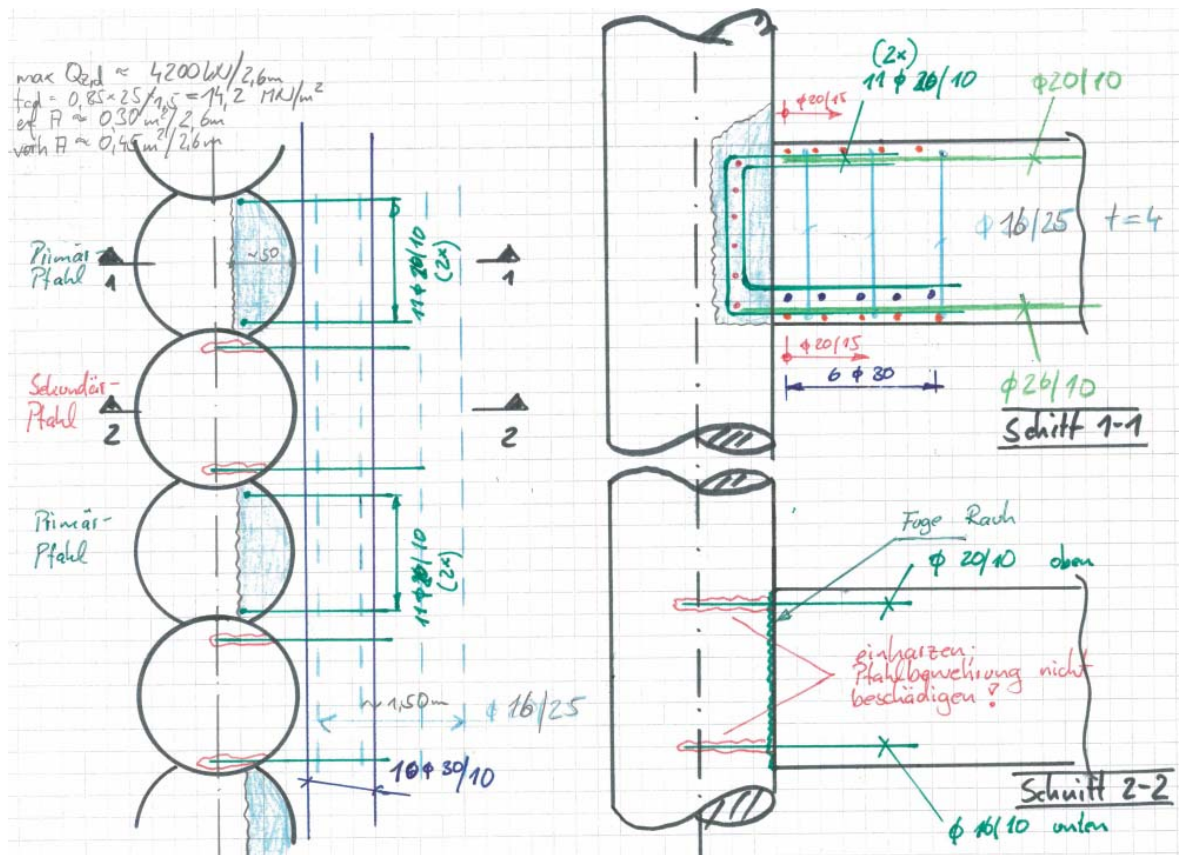 max Qz,d ≈ 4200 kN/2,6m
fcd = 0,85×25/1,5 = 14,2 MN/m²
erf A ≈ 0,30 m²/2,6m
vorh A ≈ 0,45 m²/2,6m
Primär-
Pfahl
1
~50
11 ϕ 20/10
(2x)
1
Sekundär-
Pfahl
2
2
Primär-
Pfahl
11 ϕ 20/10
(2x)
~1,50m
ϕ 16/25
ϕ 30/10
(2x)
ϕ 20/15
ϕ 20/10
ϕ 16/25
t=4
ϕ 20/15
6 ϕ 30
ϕ 26/10
Schitt 1-1
Fuge Rauh
ϕ 20/10 oben
einharzen;
Pfahlbewehrung nicht
beschädigen!
Schnitt 2-2
ϕ 16/10 unten